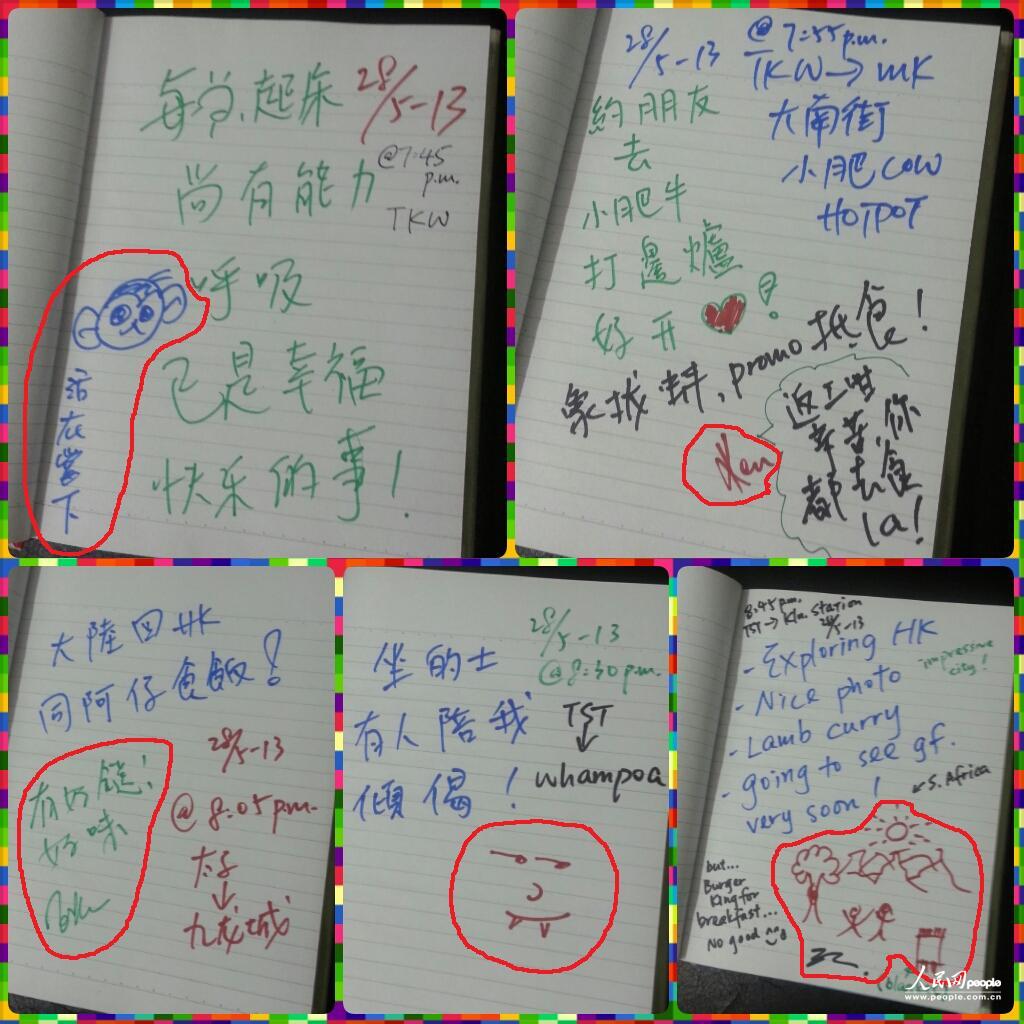 每当起床
尚有能力
呼吸
已是幸福
快乐的事!
28/5-13
@7:45
p.m.
TKW
活在當下
28/5-13
@7:55p.m.
TKW→MK
大南街
小肥COW
HOTPOT
約朋友
去
小肥牛
打邊爐
好开!
象拔蚌, promo 抵食!
返工咁
辛苦,你
都去食
la!
Ken
大陸回HK
同阿仔食飯!
好味
28/5-13
@8:05p.m.
太子
↓
九龙城
坐的士
有人陪我
傾偈!
28/5-13
@8:30p.m.
TST
↓
Whampoa
8:45p.m.
TST→Kln. Station
28/5-13
- Exploring HK
impressive
city!
- Nice photo
- Lamb curry
- going to see gf.
very soon!
← S. Africa
but...
Burger
King for
breakfast...
No good
人民网 people
www.people.com.cn